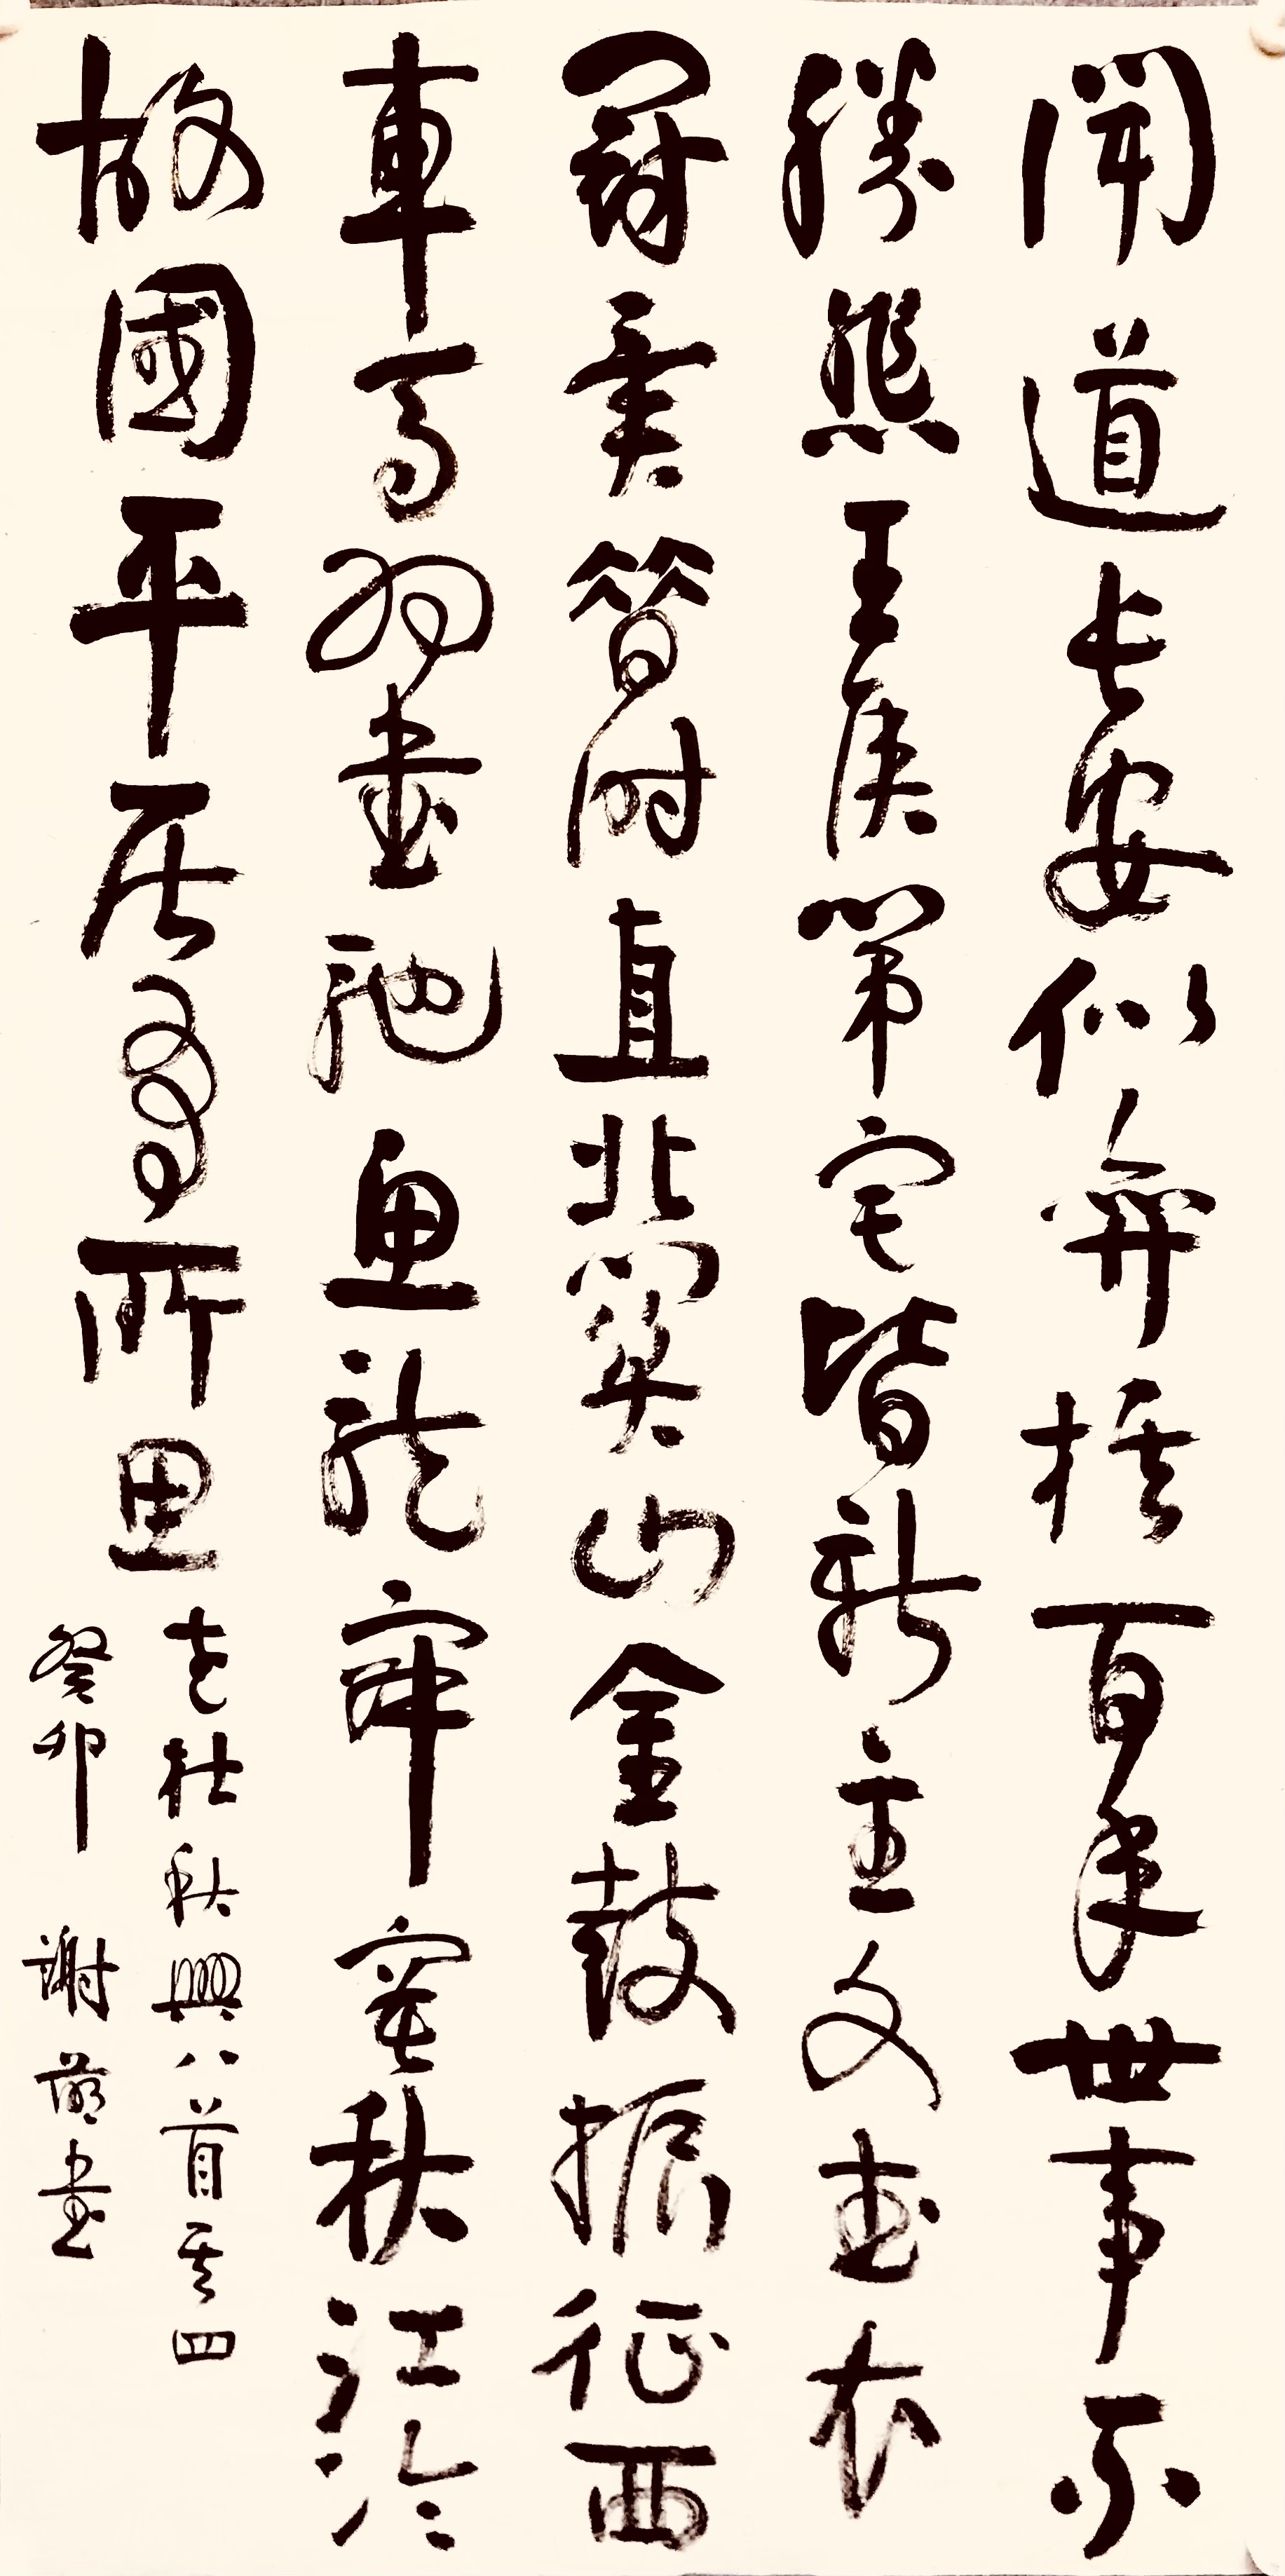 聞道長安似弈棋百年世事不
勝悲王侯第宅皆新主文武衣
冠異昔時直北關山金鼓振征西
車馬羽書馳魚龍寂寞秋江冷
故國平居有所思
老杜秋興八首其四
癸卯 謝萌書